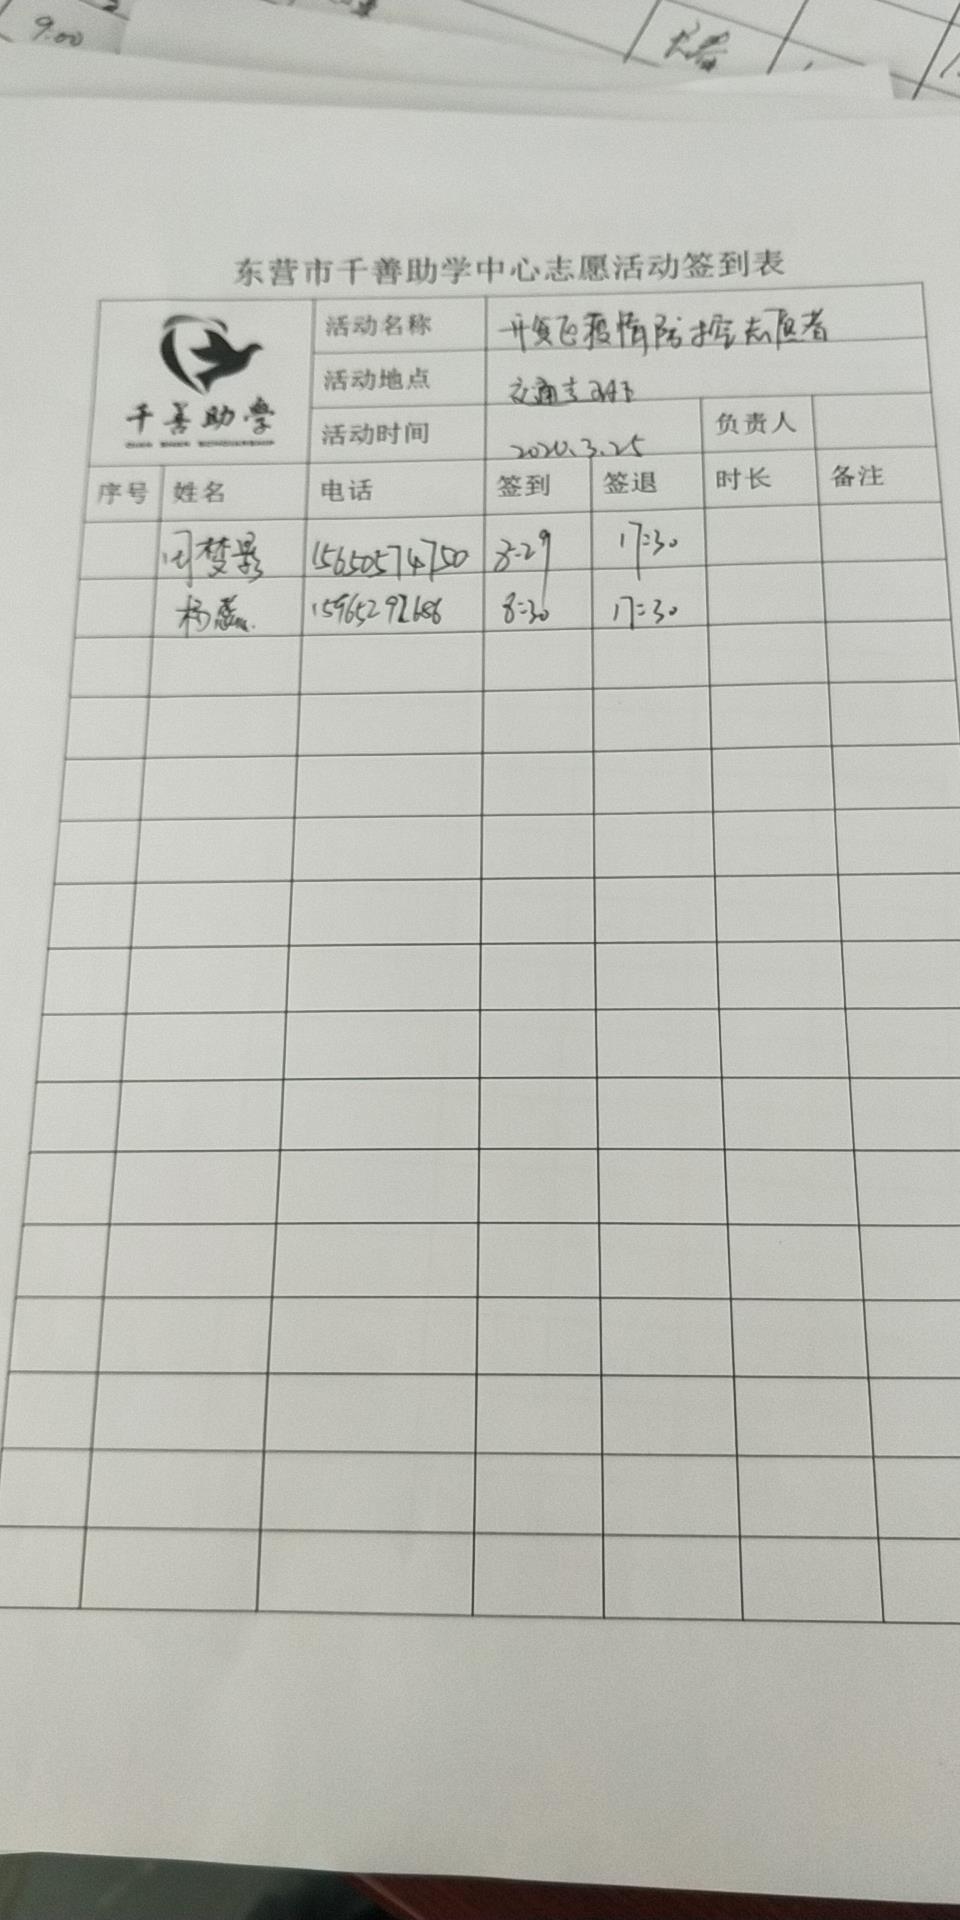 9:00
东营市千善助学中心志愿活动签到表
千善助学
活动名称 开发区疫情防控志愿者
活动地点 交通支队
活动时间 2020.3.25 负责人
序号 姓名 电话 签到 签退 时长 备注
周梦影 15650574750 8:29 17:30
杨蕊 15965292686 8:30 17:30